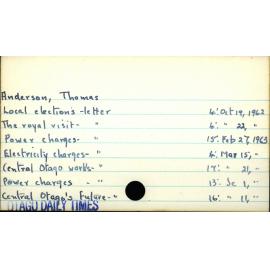 Anderson, Thomas
Local elections - letter 4: Oct 19, 1962
The royal visit - " 6: " 22, "
Power charges - " 15: Feb 27, 1963
Electricity charges - " 4: Mar 15, "
Central Otago works - " 17: " 21, "
Power charges - " 13: 1, "
Central Otago's Future - " 16: " 11, "
OTAGO DAILY TIMES